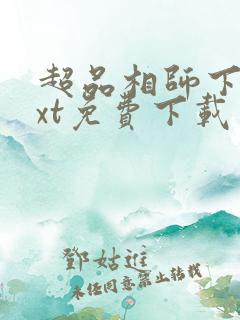 超品相師下
xt免費下載
鄧姑進
未經同意禁止轉載